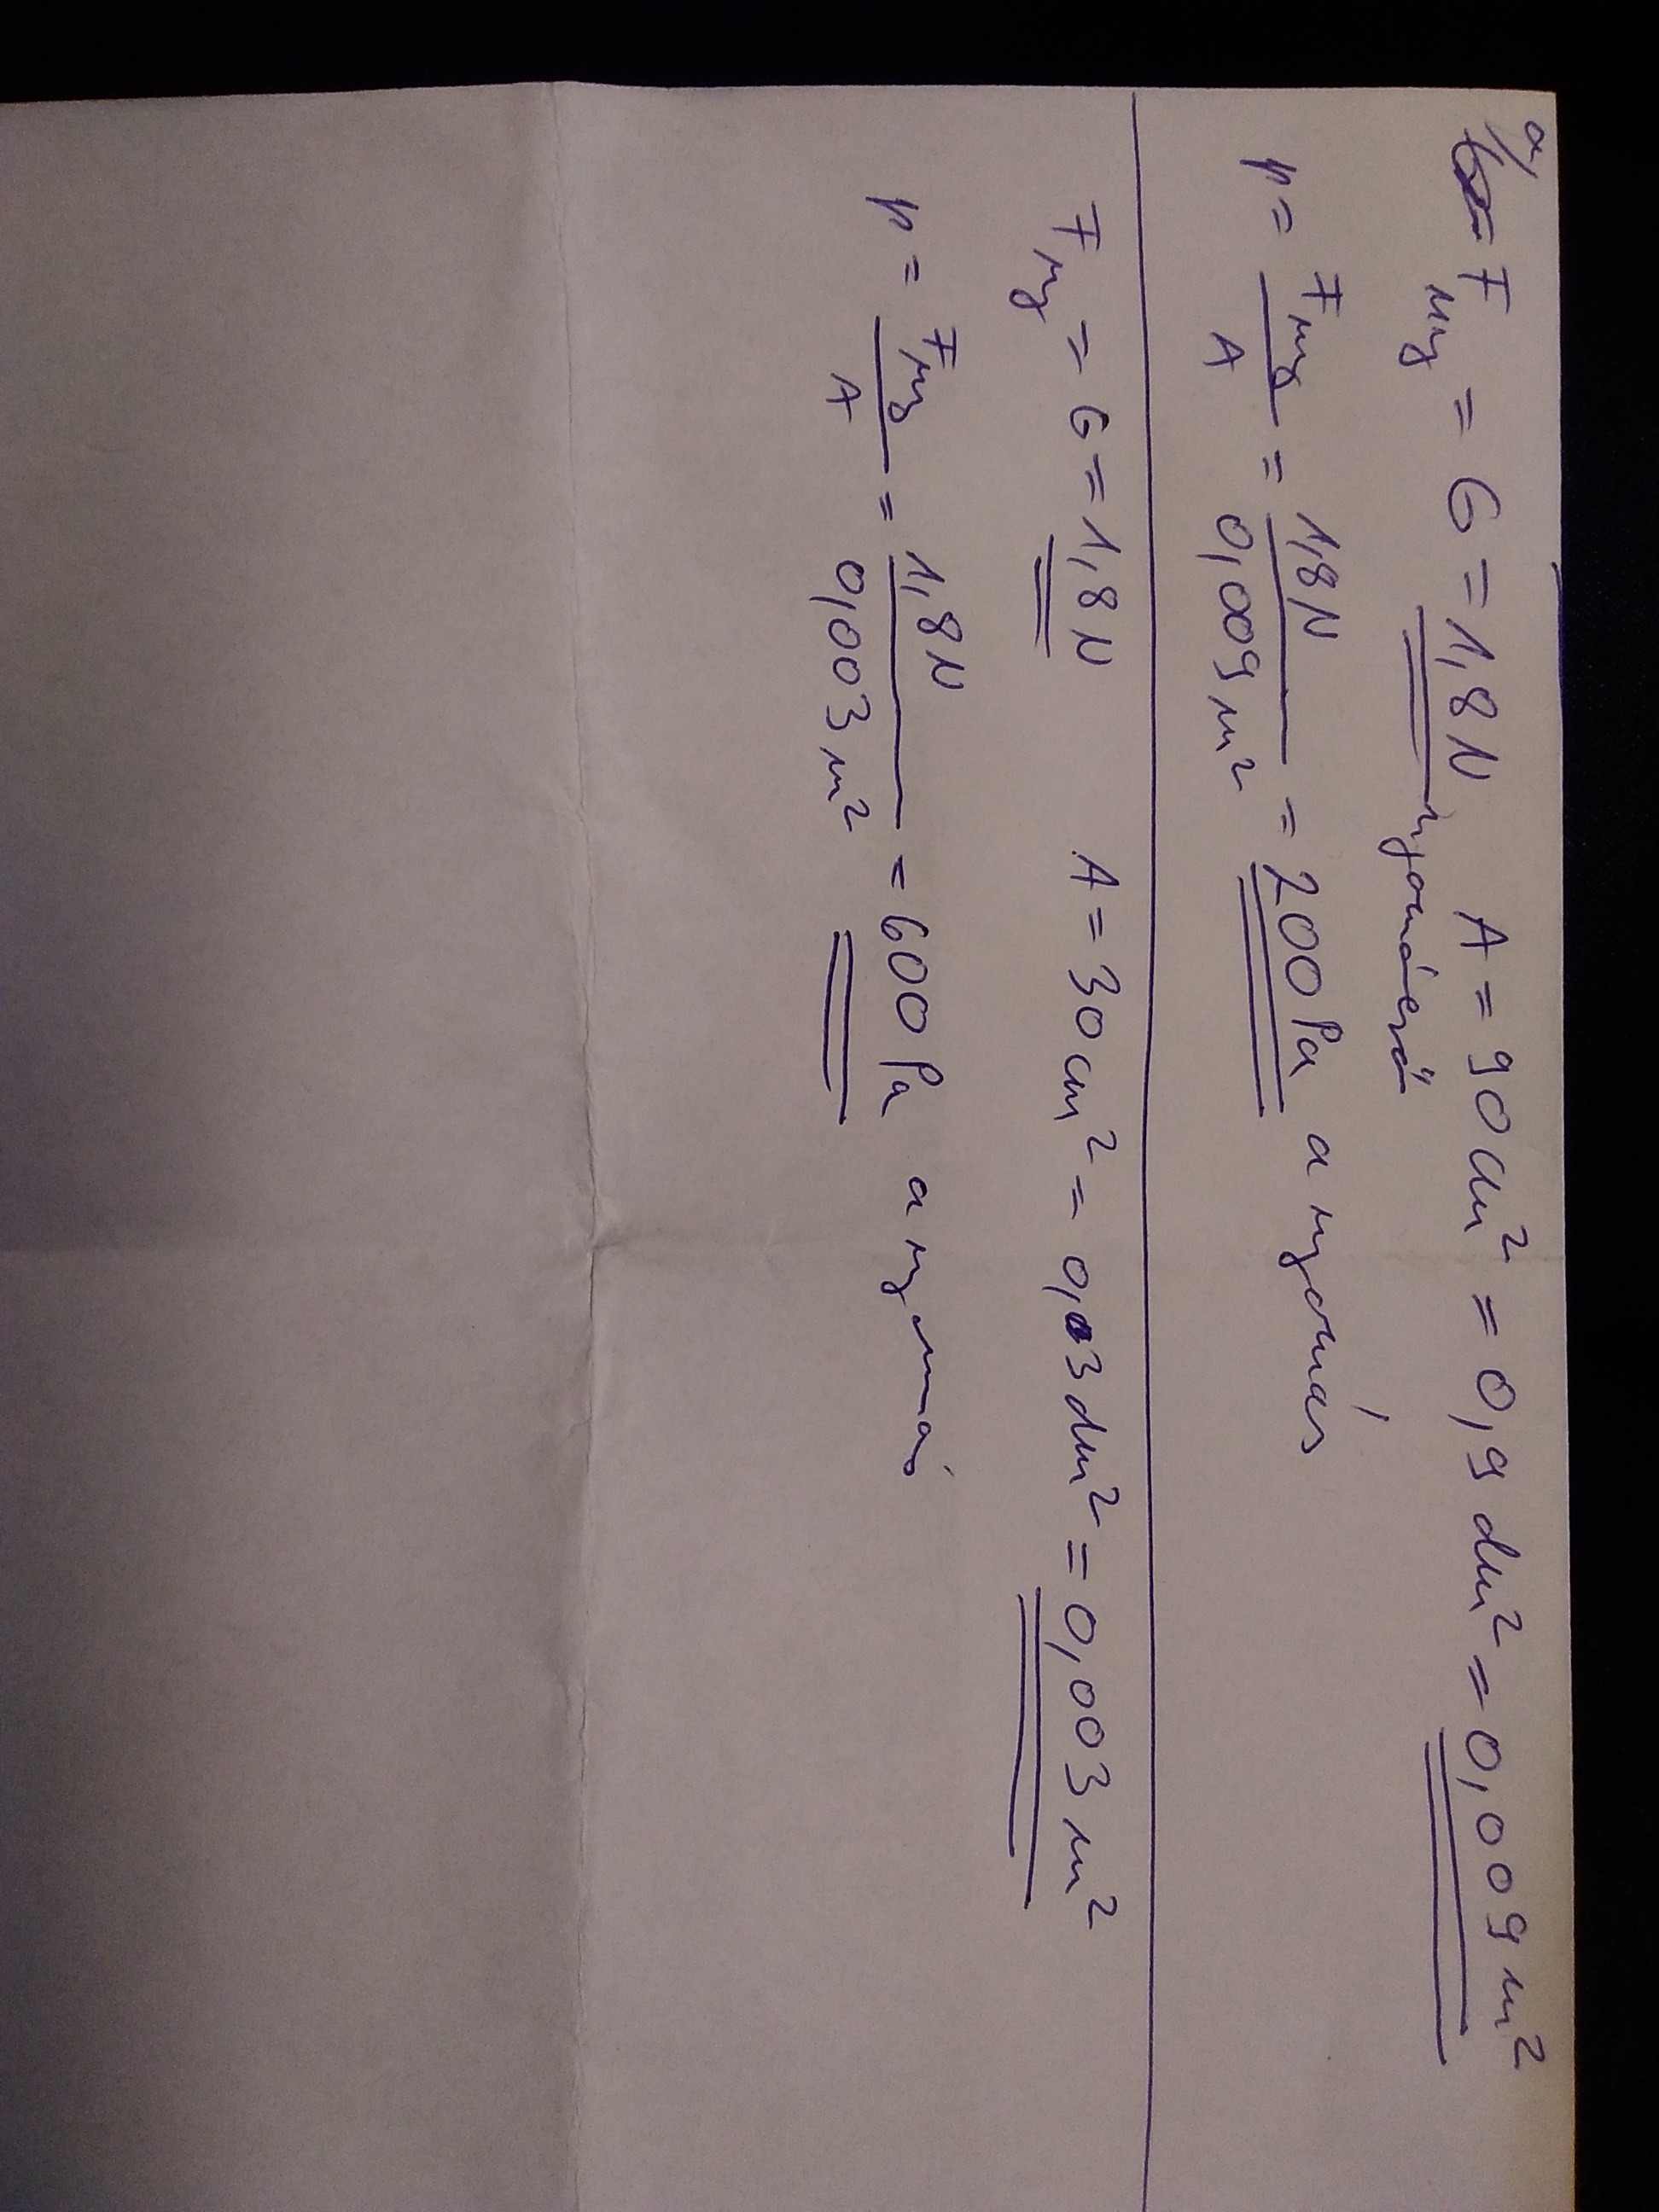 a,
F ny = G = 1,8 N A = 90 cm² = 0,9 dm² = 0,009 m²
nyomóerő
p = F ny / A = 1,8 N / 0,009 m² = 200 Pa a nyomás
F ny = G = 1,8 N A = 30 cm² = 0,03 dm² = 0,003 m²
p = F ny / A = 1,8 N / 0,003 m² = 600 Pa a nyomás